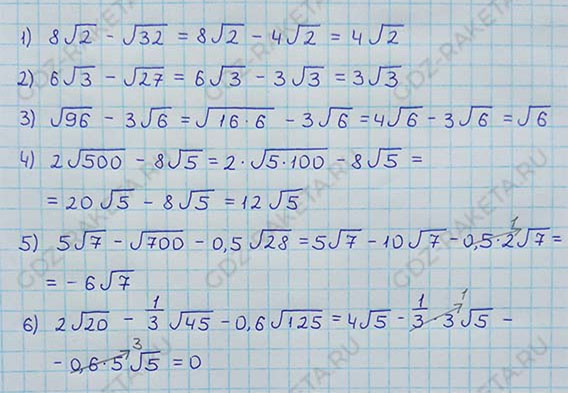 1) 8√2 - √32 = 8√2 - 4√2 = 4√2
2) 6√3 - √27 = 6√3 - 3√3 = 3√3
3) √96 - 3√6 = √16·6 - 3√6 = 4√6 - 3√6 = √6
4) 2√500 - 8√5 = 2·√5·100 - 8√5 =
= 20√5 - 8√5 = 12√5
5) 5√7 - √700 - 0,5√28 = 5√7 - 10√7 - 0,5·2√7 =
= -6√7
6) 2√20 - 1/3 √45 - 0,6√125 = 4√5 - 1/3·3√5 -
- 0,6·5√5 = 0
GDZ-RAKETA.RU